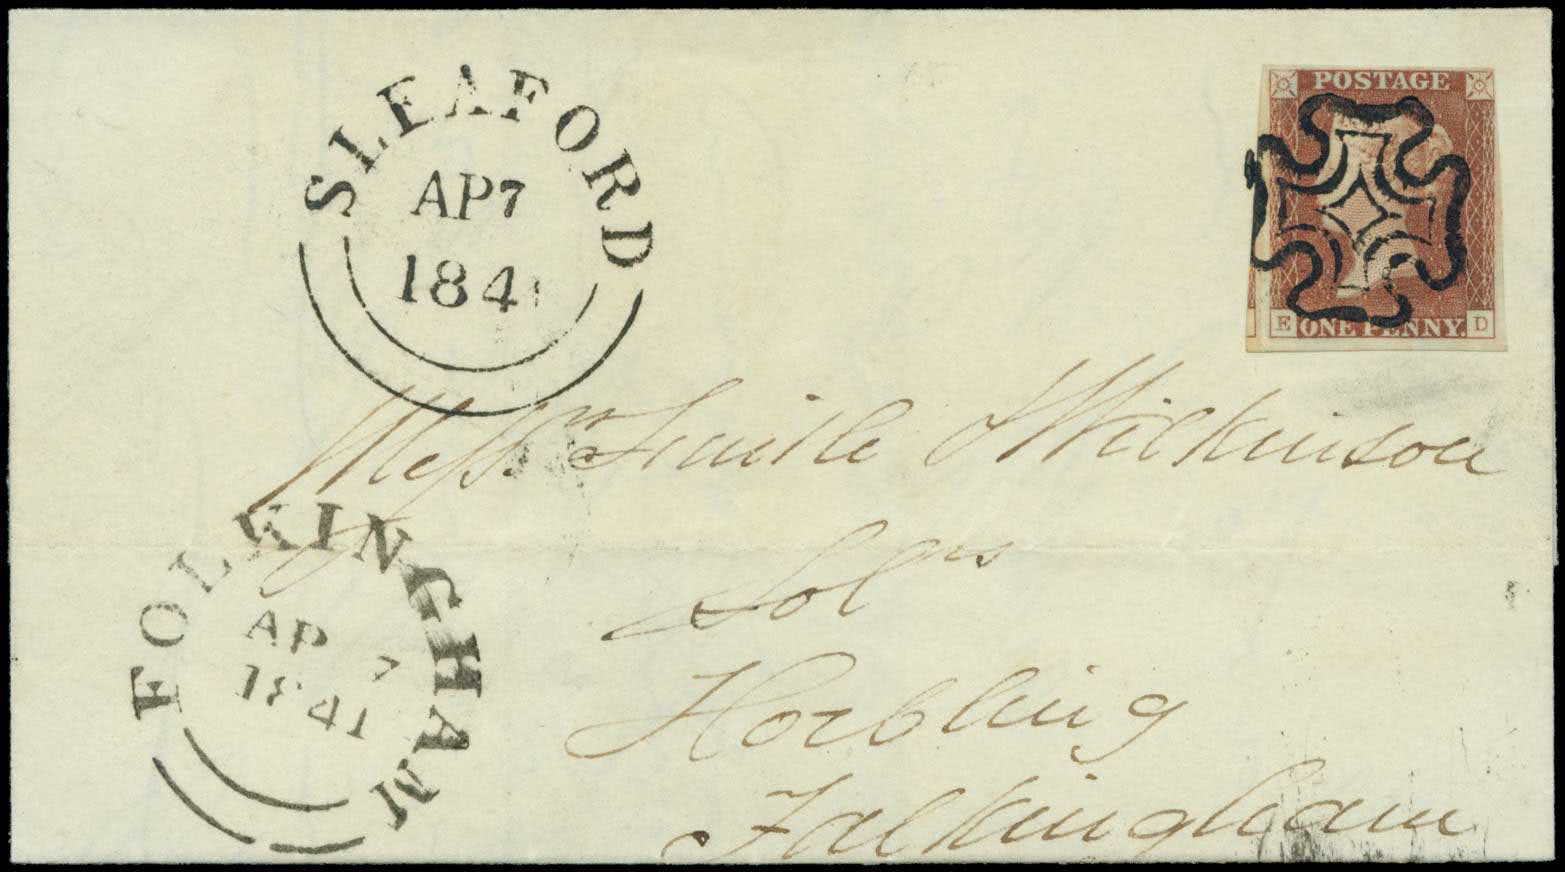 SLEAFORD
AP 7
1841
POSTAGE
E ONE PENNY. D
Messrs Smith & Wilkinson
Solrs
Horbling
Falkingham
FOLKINGHAM
AP 7
1841